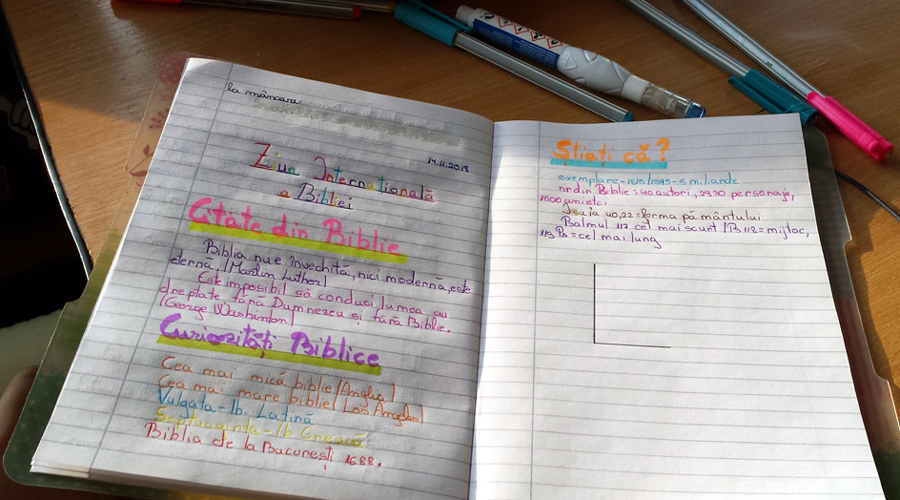 la mâncare
14.11.2018
Ziua Internațională
a Bibliei
Citate din Biblie
Biblia nu e învechită, nici modernă, este
eternă. /Martin Luther/
Este imposibil să conduci lumea cu
dreptate fără Dumnezeu și fără Biblie.
/George Washinton/
Curiozități Biblice
Cea mai mică biblie /Anglia/
Cea mai mare biblie/ Los Angeles/
Vulgata-lb. Latină
Septuaginta-lb Greacă
Biblia de la București 1688.
Știați că?
exemplare-1815/1975-5 miliarde
nr din Biblie: 40 autori, 2930 personaje,
1500 ani etc.
Isaia 40,22=forma pământului
Psalmul 117 cel mai scurt /Ps 118=mijloc,
119 Ps=cel mai lung